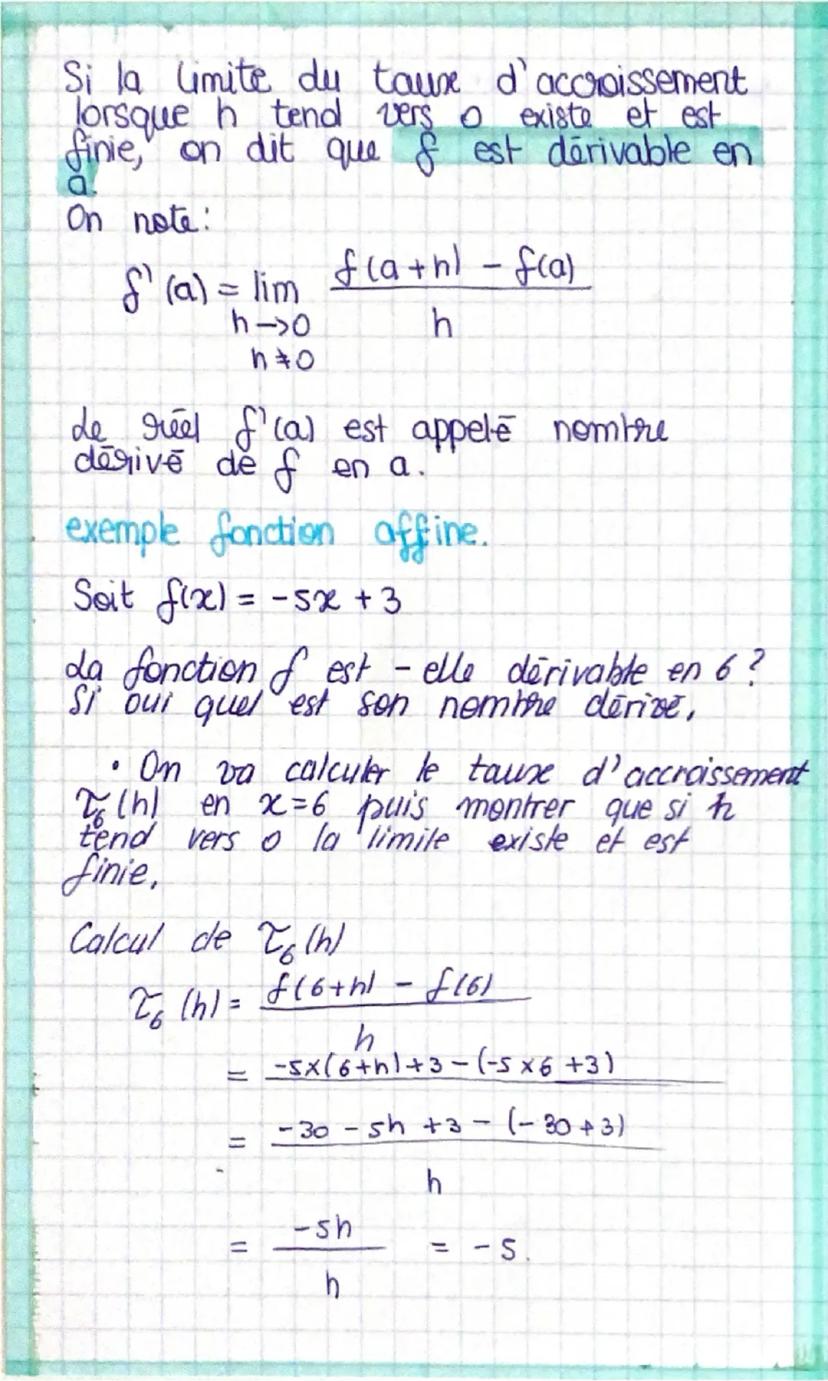 Si la limite du taux d'accroissement
lorsque h tend vers 0 existe et est
finie, on dit que f est dérivable en
a.
On note:
f'(a) = lim f(a+h) - f(a)
h->0 h
h≠0
Le réel f'(a) est appelé nombre
dérivé de f en a.
exemple fonction affine.
Soit f(x) = -5x + 3
La fonction f est-elle dérivable en 6?
Si oui quel est son nombre dérivé.
• On va calculer le taux d'accroissement
τ₆(h) en x=6 puis montrer que si h
tend vers 0 la limite existe et est
finie.
Calcul de τ₆(h)
τ₆(h) = f(6+h) - f(6)
h
= -5x(6+h)+3-(-5x6+3)
= -30 - 5h + 3 - (-30+3)
h
= -5h = -5.
h